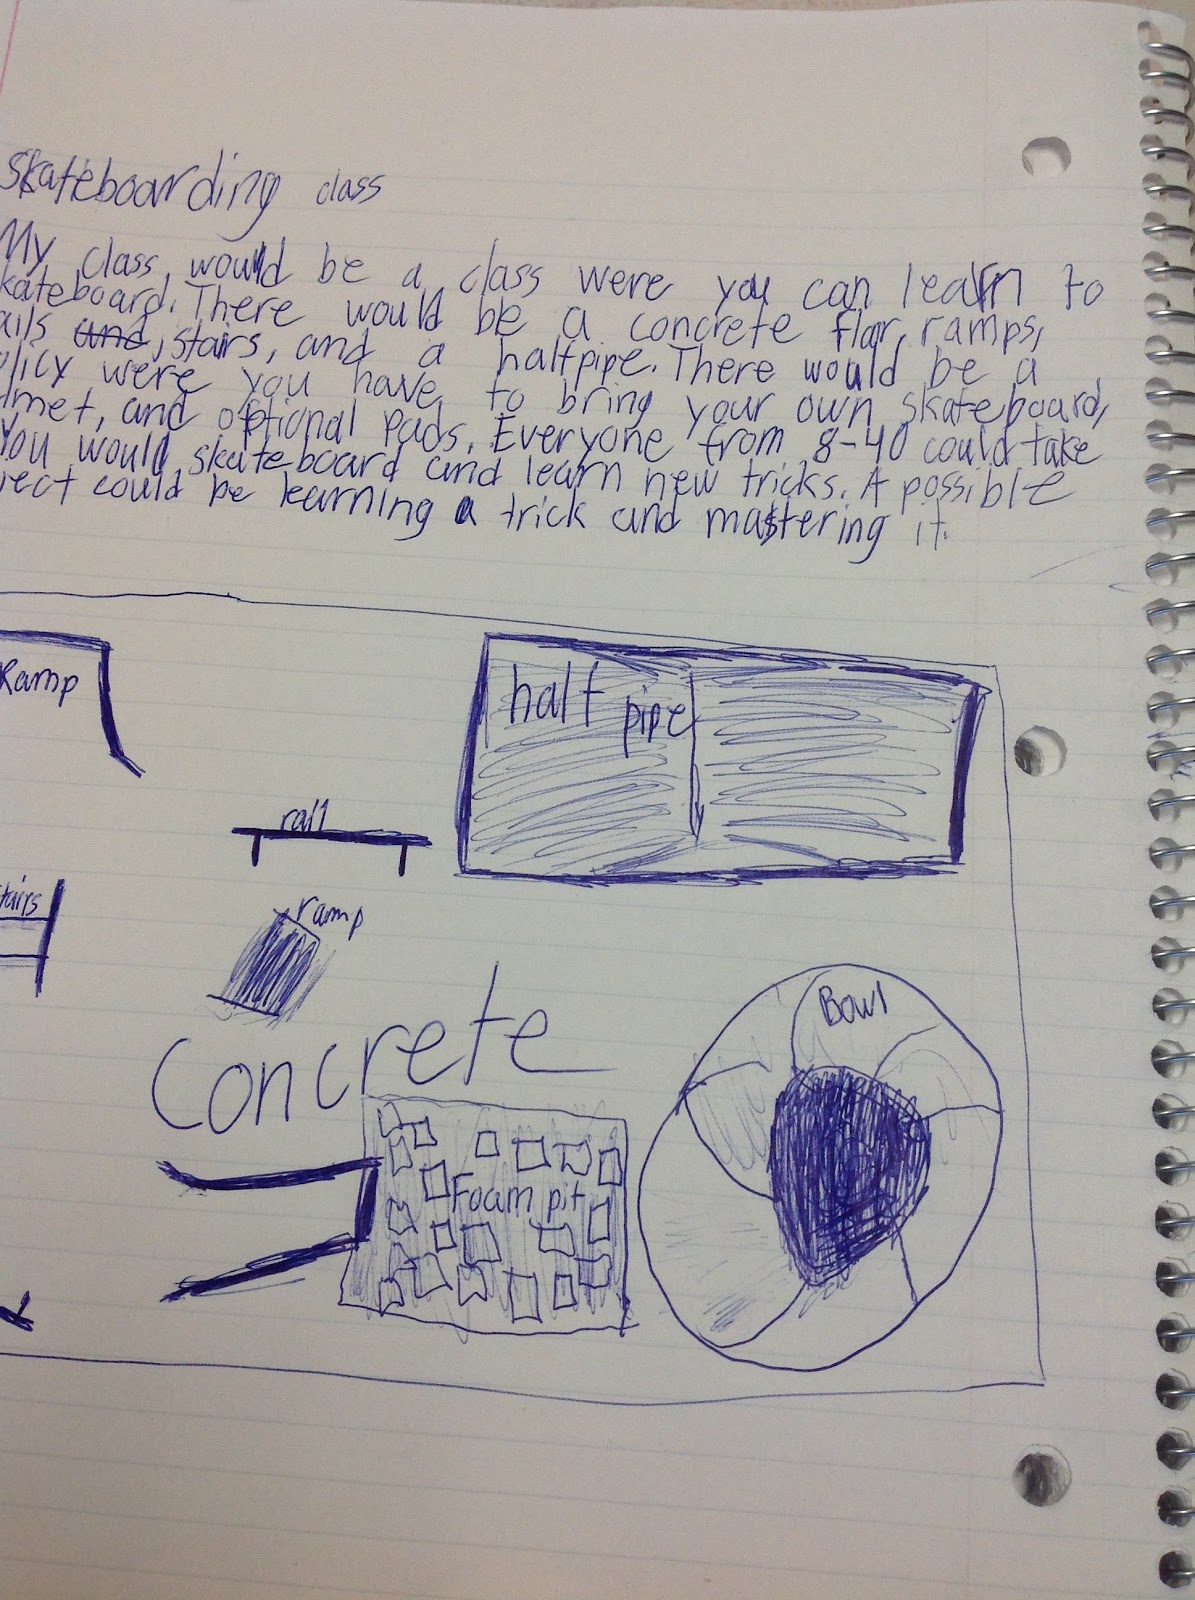 skateboarding class
My class, would be a class were you can learn to
kateboard. There would be a concrete floor, ramps,
ails and, stairs, and a halfpipe. There would be a
olicy were you have to bring your own skateboard,
lmet, and optional pads. Everyone from 8-40 could take
You would, skateboard and learn new tricks. A possible
ject could be learning a trick and mastering it.
Ramp
half pipe
rail
tairs
ramp
Bowl
Concrete
Foam pit